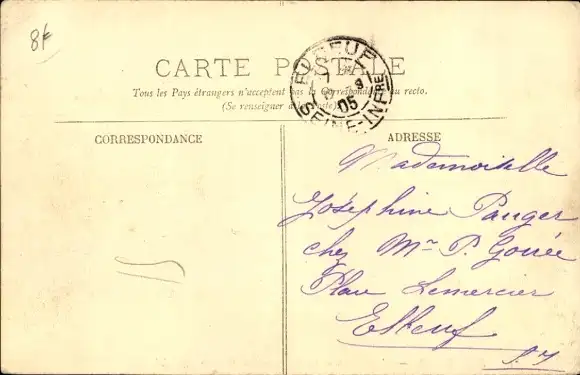 8f
CARTE POSTALE
Tous les Pays étrangers n'acceptent pas la Correspondance au recto.
(Se renseigner à la Poste)
SEINE-INFRE
05
CORRESPONDANCE
ADRESSE
Mademoiselle
Joséphine Pauger
chez Mr P. Gouée
Place Lemercier
Elbeuf
S. I